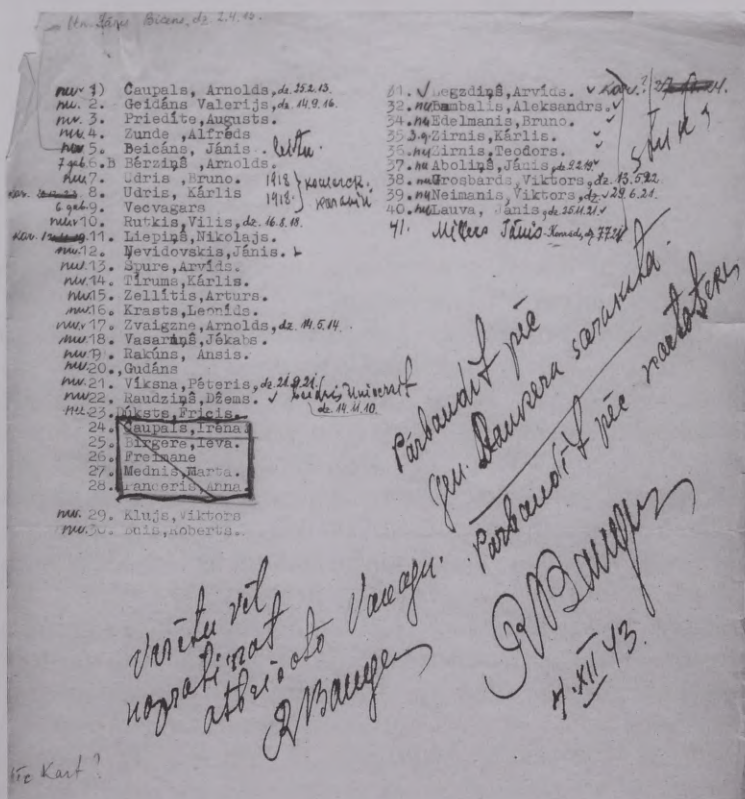 Jānis Bicēns, dz. 2.4.18.
nuv 1) Čaupals, Arnolds, dz. 25.2.13.
nu. 2. Geidāns Valerijs, dz. 14.9.16.
nuv. 3. Priedīte, Augusts.
nu. 4. Zunde, Alfrēds
nuv 5. Beicāns, Jānis.
6. B Bērziņš, Arnolds.
nuv 7. Udris, Bruno. 1918
8. Udris, Kārlis 1918.
9. Vecvagars
nuv 10. Rutkis, Vilis, dz. 16.8.18.
11. Liepiņš, Nikolajs.
nuv. 12. Nevidovskis, Jānis.
nuv. 13. Spure, Arvīds.
nuv. 14. Tīrums, Kārlis.
nuv 15. Zellītis, Arturs.
nuv 16. Krasts, Leonīds.
nuv 17. Zvaigzne, Arnolds, dz. 14.5.14.
nuv 18. Vasariņš, Jēkabs.
nuv 19. Rakūns, Ansis.
nuv 20., Gudāns
nuv. 21. Vīksna, Pēteris, dz. 21.9.21.
nuv 22. Raudziņš, Džems. ✓ dz. 14.11.10.
nu. 23. Dūksts, Fricis.
24. Čaupals, Irēna.
25. Birgere, Ieva.
26. Freimane
27. Mednis, Marta.
28. Panceris, Anna.
nuv. 29. Klujs, Viktors
nuv. 30. Buis, Roberts.
31. ✓ Legzdiņš, Arvīds. ✓
32. nu Bambalis, Aleksandrs. ✓
34. nu Edelmanis, Bruno. ✓
35. Zirnis, Kārlis. ✓
36. nu Zirnis, Teodors. ✓
37. nu Aboliņš, Jānis, dz. 9.2.19. ✓
38. nu Grosbards, Viktors, dz. 13.5.22.
39. nu Neimanis, Viktors, dz. ✓ 29.6.21.
40. nu Lauva, Jānis, dz. 25.11.21. ✓
41. Millers Jānis
Pārbaudīt pēc
ģen. Dankera saraksta.
Pārbaudīt pēc
R Bangers
7. XII 43.
Varētu vēl
noprasīt
atbrīvoto Vanagu.
R Bangers
Kart?